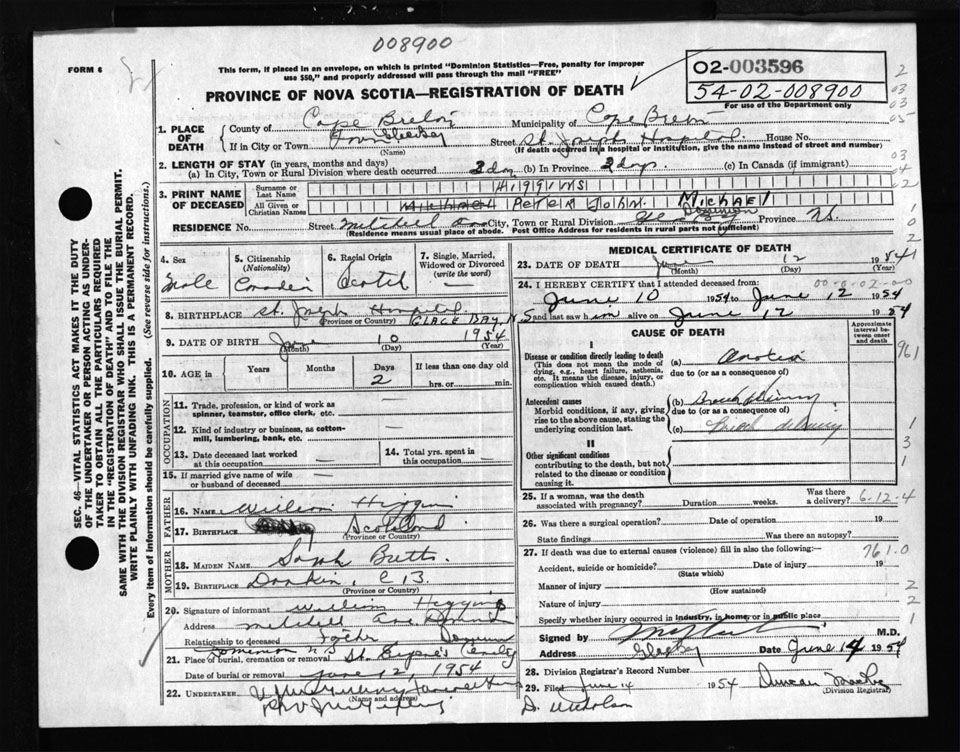 008900
FORM 6
This form, if placed in an envelope, on which is printed "Dominion Statistics—Free, penalty for improper
use $50," and properly addressed will pass through the mail "FREE"
PROVINCE OF NOVA SCOTIA—REGISTRATION OF DEATH
02-003596
54-02-008900
For use of the Department only
1. PLACE OF DEATH
County of Cape Breton Municipality of Cape Breton
If in City or Town Town Glace Bay Street St. Joseph Hospital House No.
(Name) (If death occurred in a hospital or institution, give the name instead of street and number)
2. LENGTH OF STAY (in years, months and days)
(a) In City, Town or Rural Division where death occurred 2 day (b) In Province 2 days (c) In Canada (if immigrant)
3. PRINT NAME OF DECEASED
Surname or Last Name Higgins
All Given or Christian Names Michael Peter John. Michael
RESIDENCE No. Street Mitchell Ave City, Town or Rural Division Dominion Province N.S.
(Residence means usual place of abode. Post Office Address for residents in rural parts not sufficient)
4. Sex Male
5. Citizenship (Nationality) Canadin
6. Racial Origin Scotch
7. Single, Married, Widowed or Divorced (write the word)
8. BIRTHPLACE St. Joseph Hospital GLACE BAY, N S
(Province or Country)
9. DATE OF BIRTH June 10 1954
(Month) (Day) (Year)
10. AGE in Years Months Days 2 If less than one day old hrs. or min.
OCCUPATION
11. Trade, profession, or kind of work as spinner, teamster, office clerk, etc.
12. Kind of industry or business, as cotton-mill, lumbering, bank, etc.
13. Date deceased last worked at this occupation
14. Total yrs. spent in this occupation
15. If married give name of wife or husband of deceased
FATHER
16. NAME William Higgins
17. BIRTHPLACE Scotland
(Province or Country)
MOTHER
18. MAIDEN NAME Sarah Butts
19. BIRTHPLACE Donkin, C B.
(Province or Country)
20. Signature of informant William Higgins
Address Mitchell Ave Dominion
Relationship to deceased Father
Dominion N S
21. Place of burial, cremation or removal St. Eugene's Cemetery
Date of burial or removal June 12, 1954
22. UNDERTAKER
(Name and address)
MEDICAL CERTIFICATE OF DEATH
23. DATE OF DEATH June 12 1954
(Month) (Day) (Year)
24. I HEREBY CERTIFY that I attended deceased from:
June 10 1954 to June 12 1954
and last saw him alive on June 12 1954
CAUSE OF DEATH
Approximate interval between onset and death
I
Disease or condition directly leading to death
(This does not mean the mode of dying, e.g., heart failure, asthenia, etc. It means the disease, injury, or complication which caused death.)
(a) Anoxia
due to (or as a consequence of)
Antecedent causes
Morbid conditions, if any, giving rise to the above cause, stating the underlying condition last.
(b)
due to (or as a consequence of)
(c) Breech delivery
II
Other significant conditions
contributing to the death, but not related to the disease or condition causing it.
25. If a woman, was the death associated with pregnancy? Duration weeks. Was there a delivery? 6-12-4
26. Was there a surgical operation? Date of operation 19
State findings Was there an autopsy?
27. If death was due to external causes (violence) fill in also the following:— 761.0
Accident, suicide or homicide? Date of injury 19
(State which)
Manner of injury
(How sustained)
Nature of injury
Specify whether injury occurred in industry, in home, or in public place
Signed by M.D.
Address Glace Bay Date June 14 1954
28. Division Registrar's Record Number
29. Filed June 14 1954 Duncan
(Division Registrar)
D. Nicholson
SEC. 46—VITAL STATISTICS ACT MAKES IT THE DUTY
OF THE UNDERTAKER OR PERSON ACTING AS UNDER-
TAKER TO OBTAIN ALL THE PARTICULARS REQUIRED
IN THE "REGISTRATION OF DEATH" AND TO FILE THE
SAME WITH THE DIVISION REGISTRAR WHO SHALL ISSUE THE BURIAL PERMIT.
WRITE PLAINLY WITH UNFADING INK. THIS IS A PERMANENT RECORD.
Every item of information should be carefully supplied. (See reverse side for instructions.)